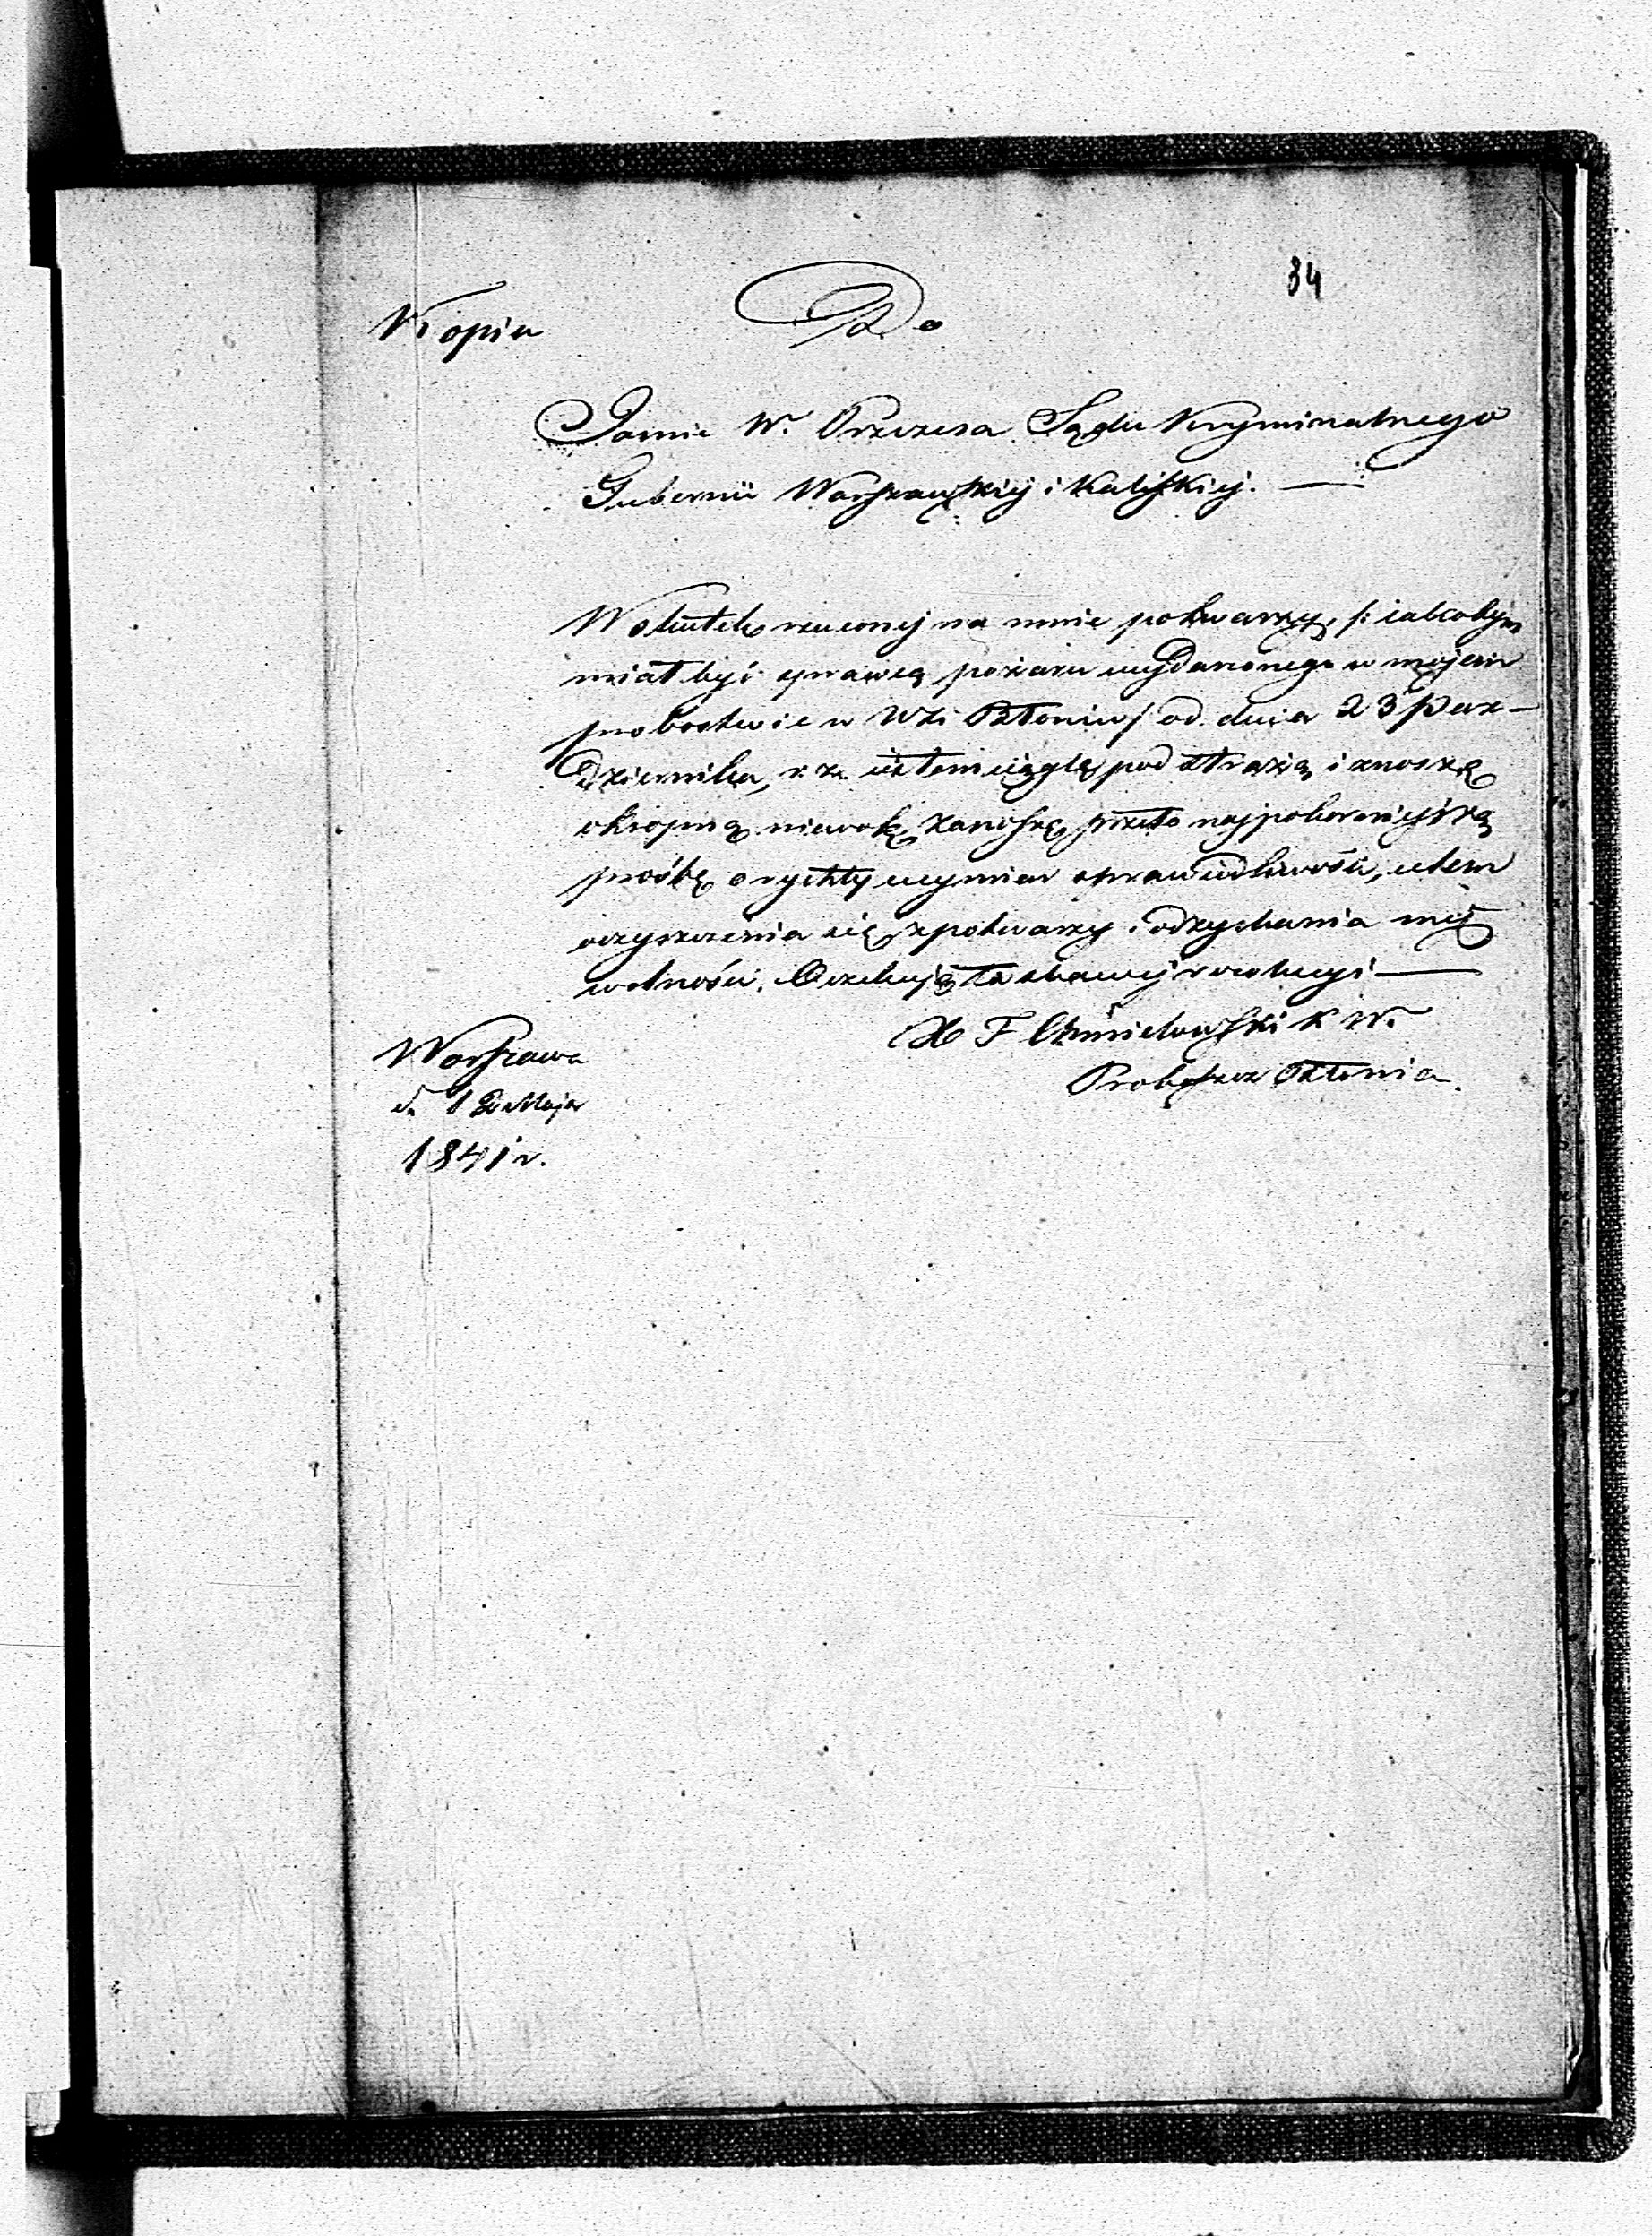 34
Kopia
Do
Jaśnie W. Prezesa Sądu Kryminalnego
Gubernii Warszawskiej i Kaliskiej.
W skutek rzuconej na mnie potwarzy, /: jakobym
miał być sprawcą pożaru wydarzonego w mojem
probostwie w Wsi / od dnia 23 Paz-
dziernika, r. z. jestem ciągle pod strażą i znoszę
okropną niewolę, zanoszę przeto najpokorniejszą
prośbę o rychły wymiar sprawiedliwości, celem
oczyszczenia się z potwarzy i odzyskania mej
wolności. Oczekuję łaskawej rezolucyi
X F Chmielewski K W.
Proboszcz
Warszawa
d. Maja
1841 r.